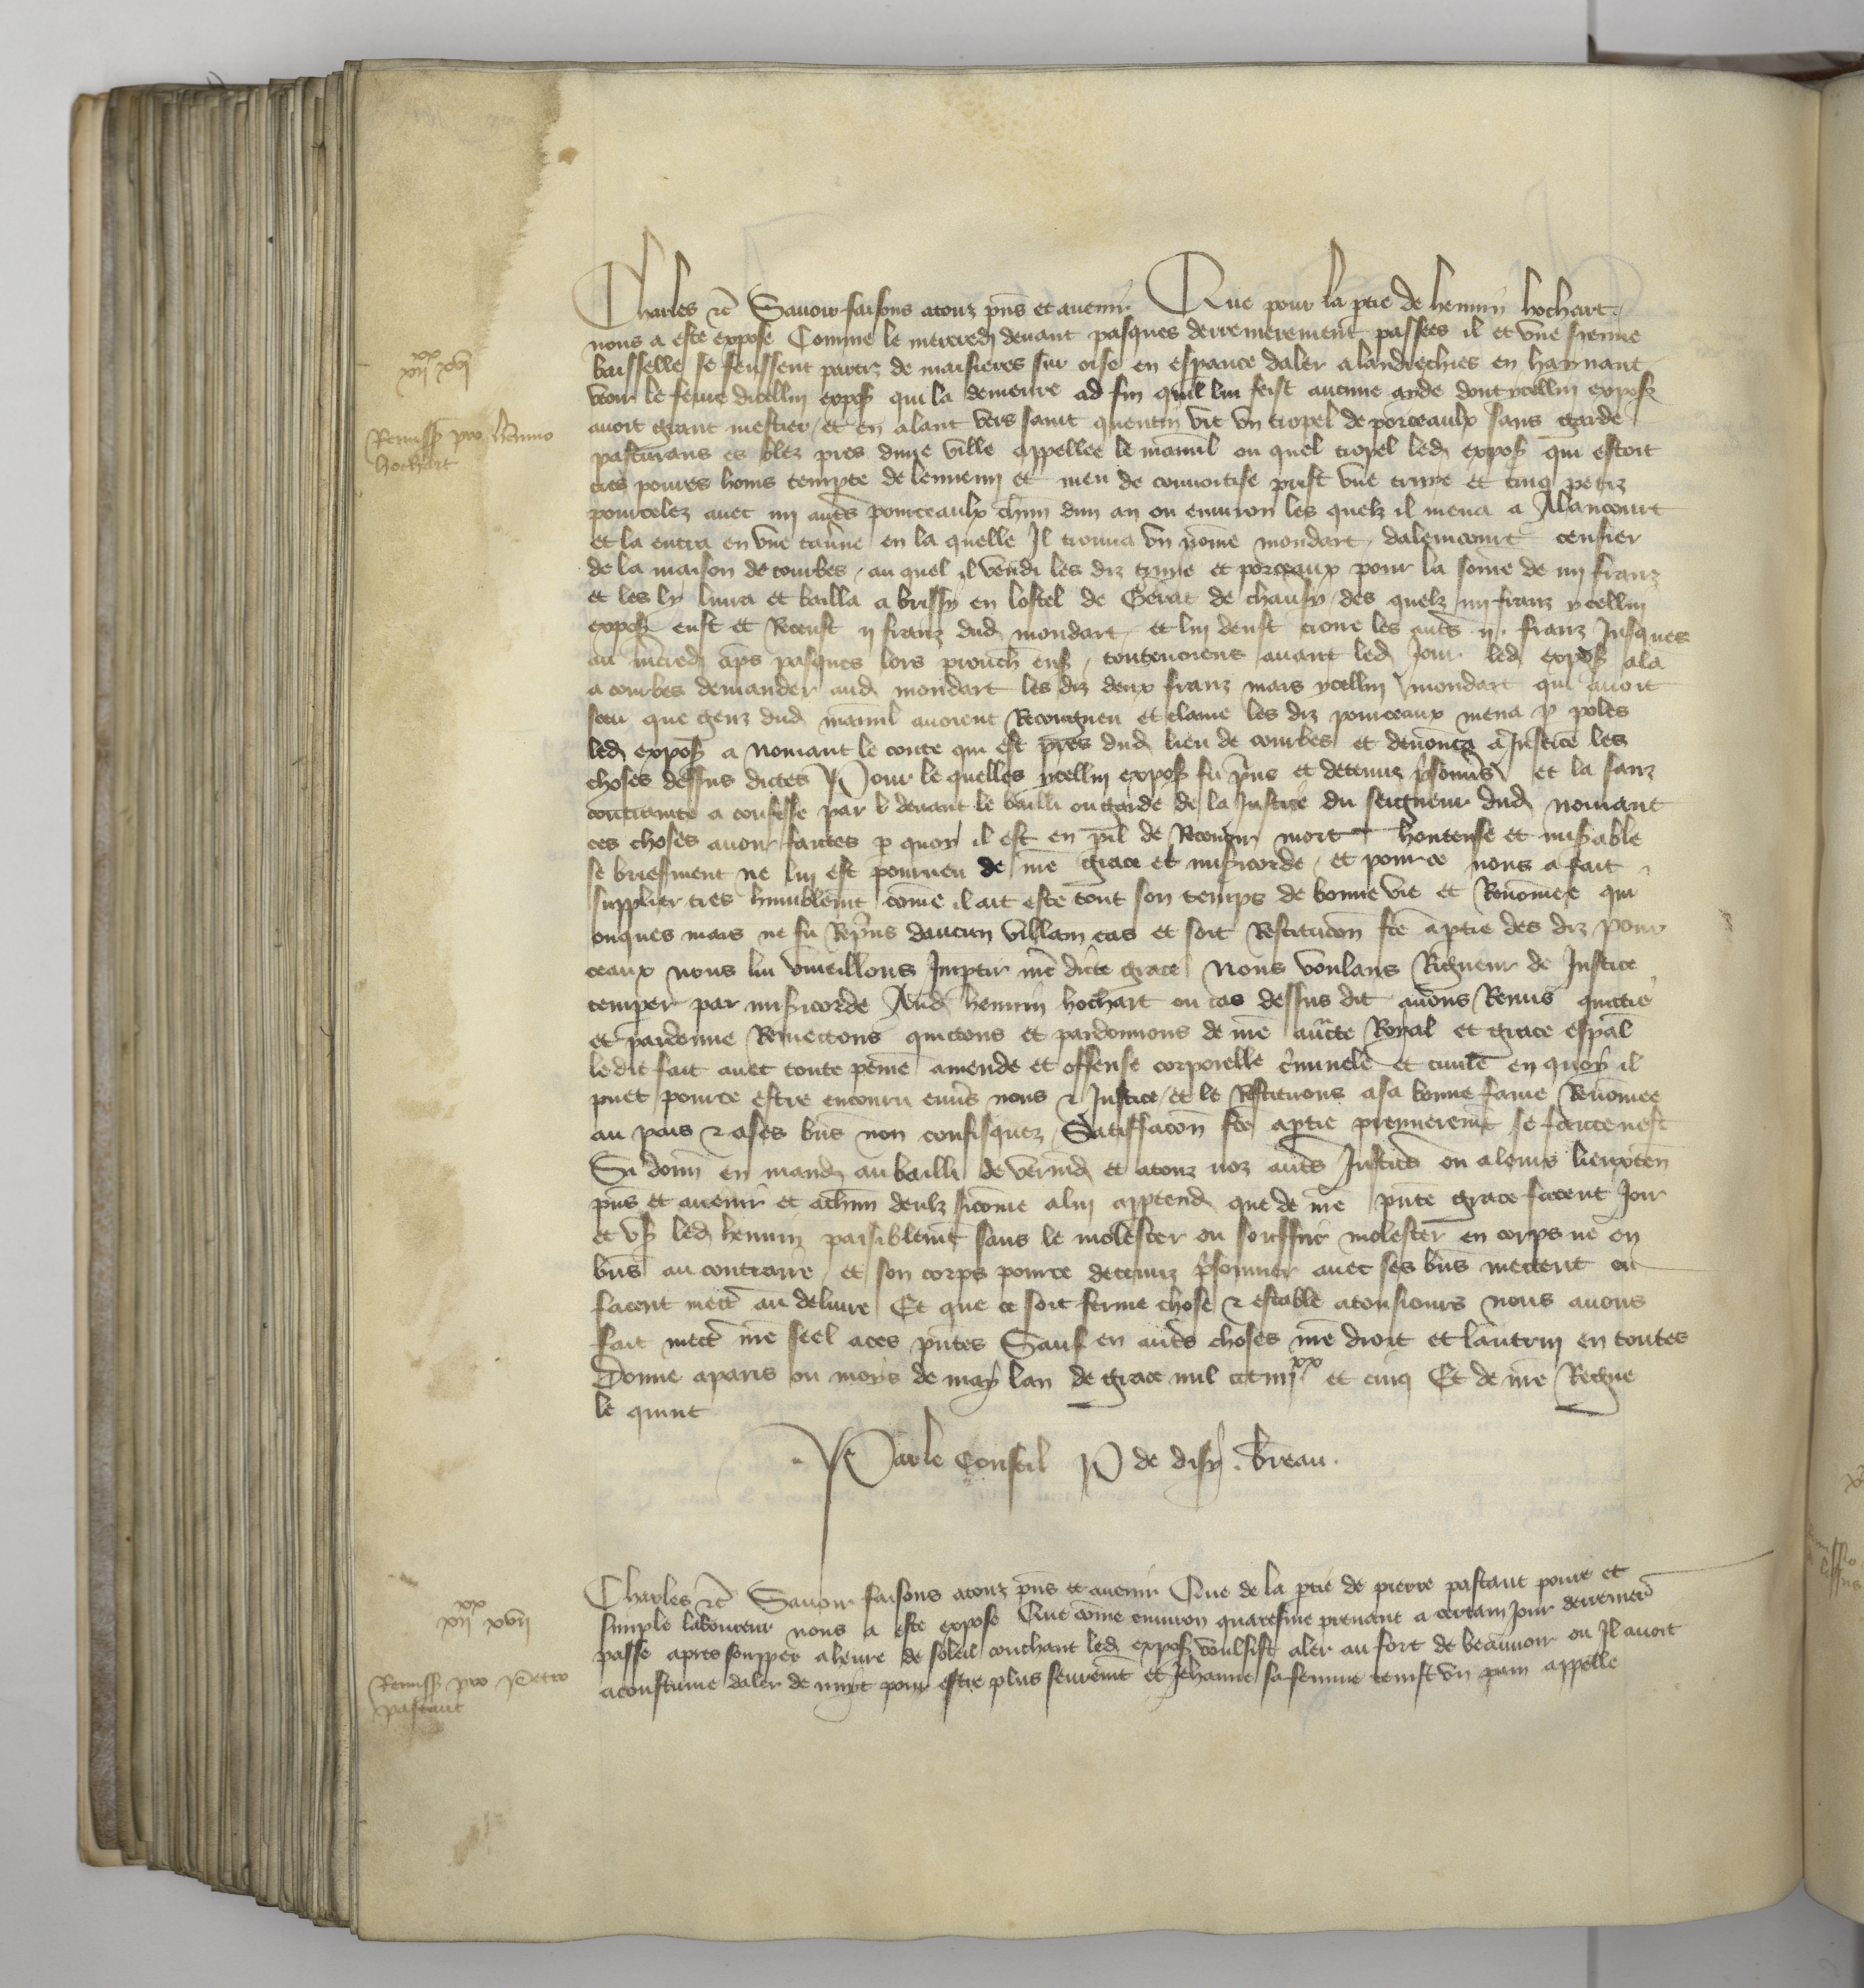 Charles etc Savoir faisons atouz pns et avenir Que pour la ptie de hennin hochart
nous a este expose Comme le mercredi devant pasques derrenierement passees il et une sienne
baisselle se feussent partiz de maisieres sur oise en esperance daler a landrechies en haynaut
veoir le frere dicellui expos qui la demeure ad fin quil lui feist aucune ayde dont ycellui expos
avoit grant mestier et en alant vers saint quentin vit un tropel de porceaulx sans garde
pasturans es blez pres dune ville appellee le mesnil ou quel tropel led expos qui estoit
tres povres homs tempte de lennemi et meu de convoitise prist une truye et cinq petiz
pourcelez avec iiij autres pourceaulx chun dun an ou environ les quelz il mena a Alaincourt
et la entra en une taverne en la quelle Il trouva un nome mondart dalencourt censier
de la maison de courbes au quel il vendi les diz truye et porceaux pour la some de iiij frans
et les ly livra et bailla a brissy en lostel de Gerat de chausy des quelz iiij frans ycellui
expos eust et Receust ij frans dud mondart et lui deust croire les autres ij frans Jusques
au mercredi aps pasques lors prouch ens toutevoiens avant led Jour led expos ala
a courbes demander aud mondart les diz deux frans mais ycellui mondart qui avoit
sceu que genz dud mesnil avoient Recongneu et clame les diz pourceaux mena p poles
led expos a nomant le conte qui est pres dud lieu de courbes et denonca a Justice les
choses dessus dictes Pour le quelles ycellui expos fu pris et detenuz prisonnier et la sanz
contrainte a confesse par devant le bailli ou garde de la Justice du seigneur dud nomant
ces choses avoir faictes p quoy il est en pil de Recevoir mort honteuse et miserable
se briefment ne lui est pourveu de nre grace et misericorde et pource nous a fait
supplier tres humblemt come il ait este tout son temps de bonne vie et Renomee qui
onques mais ne fu Repris daucun villain cas et soit Restitucion fce a ptie des diz pour
ceaux nous lui vueillons Impartir nre dicte grace Nous voulans Rigueur de Justice
temperer par misericorde Aud hennin hochart ou cas dessus dit avons Remis quictie
et pardonne Remectons quictons et pardonnons de nre aucte Royal et grace espal
ledit fait avec toute peine amende et offense corporelle criminele et civile en quoy il
puet pource estre encouru envers nous et Justice et le Restituons asa bonne fame Renomee
au pais et ases biens non confisquez Satiffacon fce aptie premierement se faicte nest
Si donn en mand au bailli de vermd et atouz noz autres Justiciers ou aleurs lieuxten
pns et avenir et achun deulx sicome alui apptend que de nre pnte grace facent Joir
et us led hennin paisiblemt sans le molester ou souffrir molester en corps ne en
biens au contraire et son corps pource detenuz prisonnier avec ses biens mectent ou
facent mectre au delivre Et que ce soit ferme chose et estable atousiours nous avons
fait mectre nre seel aces pntes Sauf en autres choses nre droit et lautrui en toutes
Donne aparis ou moys de may lan de grace mil ccc iiij xx et cinq Et de nre Regne
le quint
Par le Conseil P de disy . breau .
xii xx xvi
Remiss pro hennino
hochart
Charles etc Savoir faisons atouz pns et avenir Que de la ptie de pierre pastant povre et
simple laboureur nous a este expose Que come environ quaresme prenant a certain Jour derrenier
passe apres soupper a heure de soleil couchant led expos voulsist aler au fort de beauvoir ou Il avoit
acoustume daler de nuyt pour estre plus seurement et Jehanne sa femme tenist un pain appelle
xii xx xvii
Remiss pro Petro
pastant